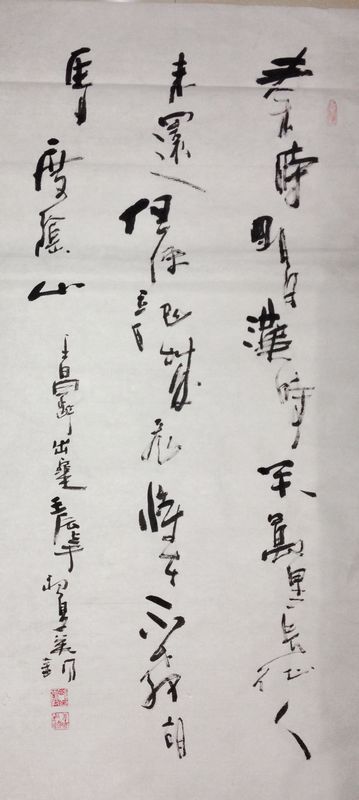 秦時明月漢時关萬里長征人
未還但使龍城飛將在不教胡
馬度陰山
王昌齡出塞壬辰